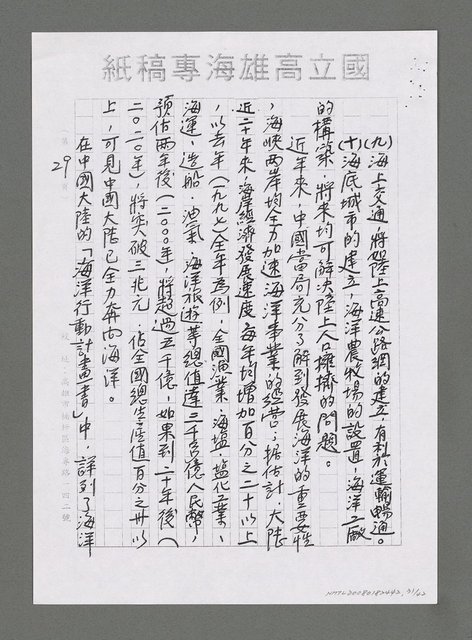 國立高雄海專稿紙
(九)海上交通,將如陸上高速公路網的建立,有利於運輸暢通。
(十)海底城市的建立,海洋農牧場的設置,海洋工廠
的構築,將來均可解決陸上人口擁擠的問題。
近年來,中國當局充分了解到發展海洋的重要性
,海峽兩岸均全力加速海洋事業的經營;据估計,大陸
近二十年來,海岸經濟發展速度,每年均增加百分之二十以上
,以去年(一九九七)全年為例,全國漁業、海塩、塩化工業、
海運、造船、油氣、海洋旅游等總值達三千多億人民幣,
預估兩年後(二○○○年,將超過五千億,如果到二十年後(
二○二○年),將突破三兆元,佔全國總生產值百分之卅以
上,可見中國大陸已全力奔向海洋。
在中國大陸的「海洋行動計畫書」中,詳列了海洋
29
校址:高雄市楠梓區海專路一四二號
NMTL20080182442, 31/62